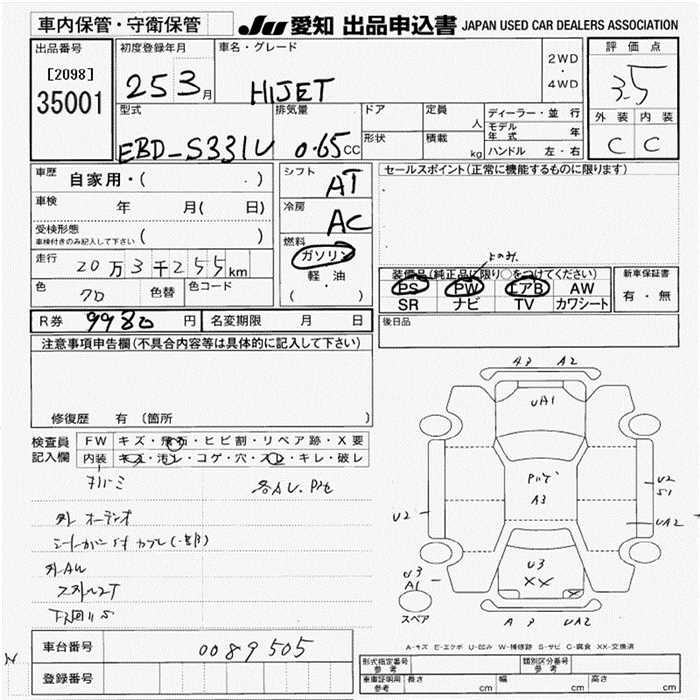 車内保管・守衛保管
JU 愛知 出品申込書 JAPAN USED CAR DEALERS ASSOCIATION
出品番号 初度登録年月 車名・グレード 2WD ・ 4WD 評価点
[2098] 35001 25 3月 HIJET 3.5
型式 排気量 ドア 定員 人 ディーラー・並行 外装 内装
EBD-S331V 0.65 CC 形状 積載 kg モデル年式 年 C C
ハンドル 左・右
車歴 自家用・( ・) シフト AT セールスポイント(正常に機能するものに限ります)
車検 年 月( 日) 冷房 AC
受検形態 車検付きのみ記入して下さい ( )
燃料 ガソリン 軽・油 ( )
走行 20万3千255km
装備品(純正品に限り○をつけてください) 新車保証書
PS PW エアB AW 有・無
色 色替 色コード SR ナビ TV カワシート
R券 9980 円 名変期限 月 日 後日品
注意事項申告欄(不具合内容等は具体的に記入して下さい)
修復歴 有 (箇所 )
A3 A2
UA1
検査員 FW キズ・飛石・ヒビ割・リペア跡・X要
記入欄 内装 キズ・汚レ・コゲ・穴・スレ・キレ・破レ
A3
U2
S1
外レ オーディオ
U2 UA2
U3
XX
外AW
U3
A1
スペア A3 UA2
A-キズ E-エクボ U-凹み W-補修跡 S-サビ C-腐食 XX-交換済
車台番号 0089505
登録番号
形式指定番号 参考 類別区分番号 参考
車庫証明用 参考 長さ cm 幅 cm 高さ cm